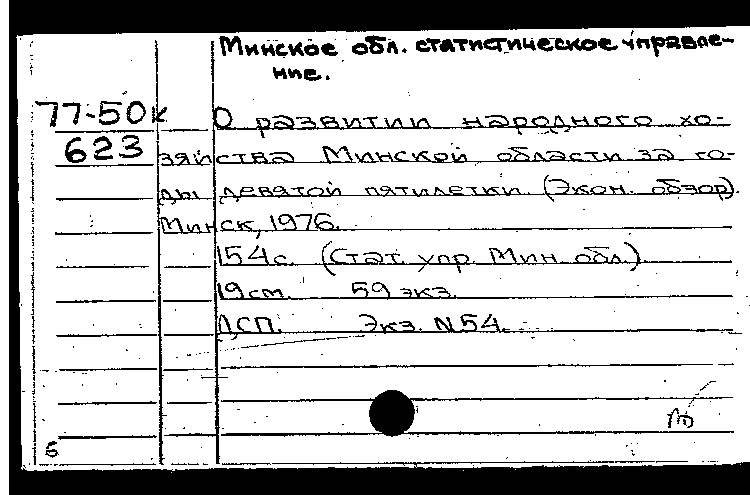 Минское обл. статистическое управле-
ние.
77-50к
623
О развитии народного хо-
зяйства Минской области за го-
ды девятой пятилетки. (Экон. обзор).
Минск, 1976.
154 с. (Стат. упр. Мин. обл.)
19 см. 59 экз.
ДСП. Экз. N 54.